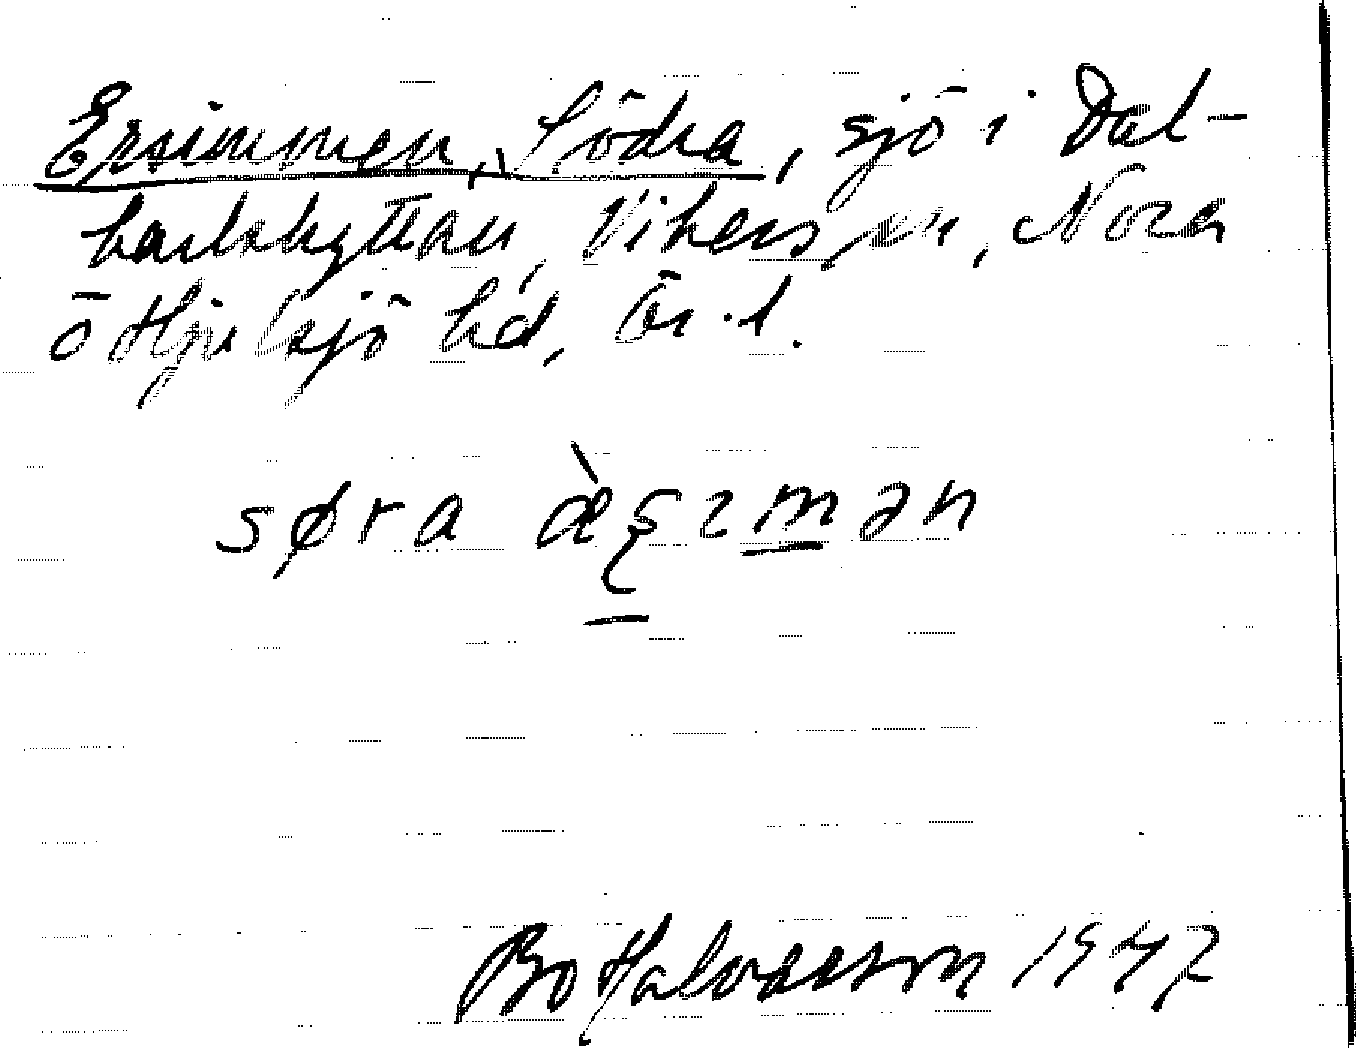 Ersimmen, Södra, sjö i Dal-
karlshyttan, Vikers sn, Nora
o Hjulsjö hd, Ör. l.
søra æ̀ʂɪmən
Bo Halvarsson 1947